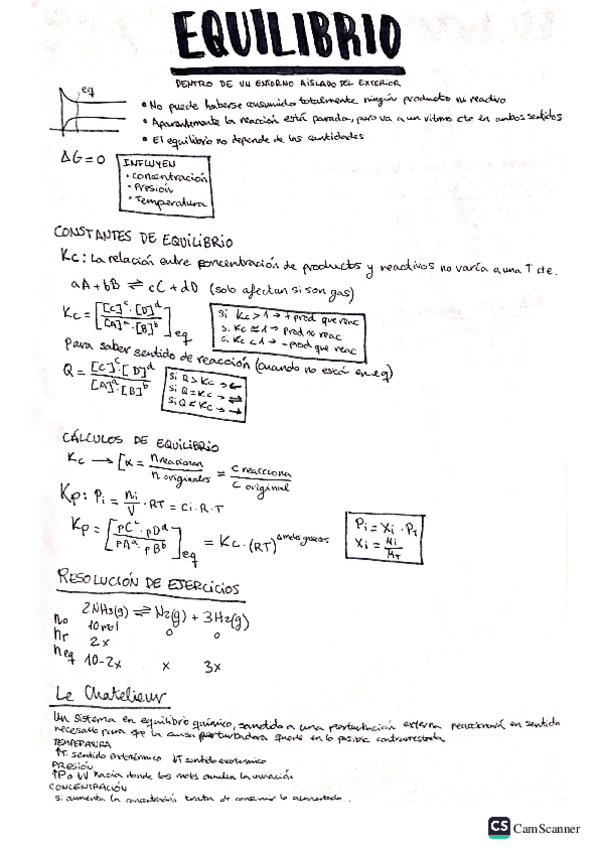 EQUILIBRIO
DENTRO DE UN ENTORNO AISLADO DEL EXTERIOR
eq
• No puede haberse consumido totalmente ningún producto ni reactivo
• Aparentemente la reacción está parada, pero va a un ritmo cte en ambos sentidos
• El equilibrio no depende de las cantidades
ΔG=0
INFLUYEN
• concentración
• Presión
• Temperatura
CONSTANTES DE EQUILIBRIO
Kc: La relación entre concentración de productos y reactivos no varía a una T cte.
aA + bB ⇌ cC + dD (solo afectan si son gas)
Kc = [[C]^c · [D]^d / [A]^a · [B]^b]eq
Si Kc > 1 → + prod que reac
Si Kc ≈ 1 → prod ≈ reac
Si Kc < 1 → - prod que reac
Para saber sentido de reacción (cuando no está en eq)
Q = [C]^c · [D]^d / [A]^a · [B]^b
Si Q > Kc → ←
Si Q = Kc → ⇌
Si Q < Kc → →
CÁLCULOS DE EQUILIBRIO
Kc → [α = n reaccionan / n originales = C reacciona / C original
Kp: Pi = ni / V · RT = Ci · R · T
Kp = [pC^c · pD^d / pA^a · pB^b]eq = Kc · (RT)^Δmoles gaseosos
Pi = Xi · PT
Xi = ni / nT
RESOLUCIÓN DE EJERCICIOS
2NH3(g) ⇌ N2(g) + 3H2(g)
no 10mol 0 0
nr 2x
neq 10-2x x 3x
Le Chatelieur
Un sistema en equilibrio químico, sometido a una perturbación externa reaccionará en sentido
necesario para que la causa perturbadora quede en lo posible contrarrestada
TEMPERATURA
↑T sentido endotérmico ↓T sentido exotérmico
PRESIÓN
↑P o ↓V hacia donde los mols
CONCENTRACIÓN
Si aumenta la concentración trata de consumir lo aumentado.
CS CamScanner